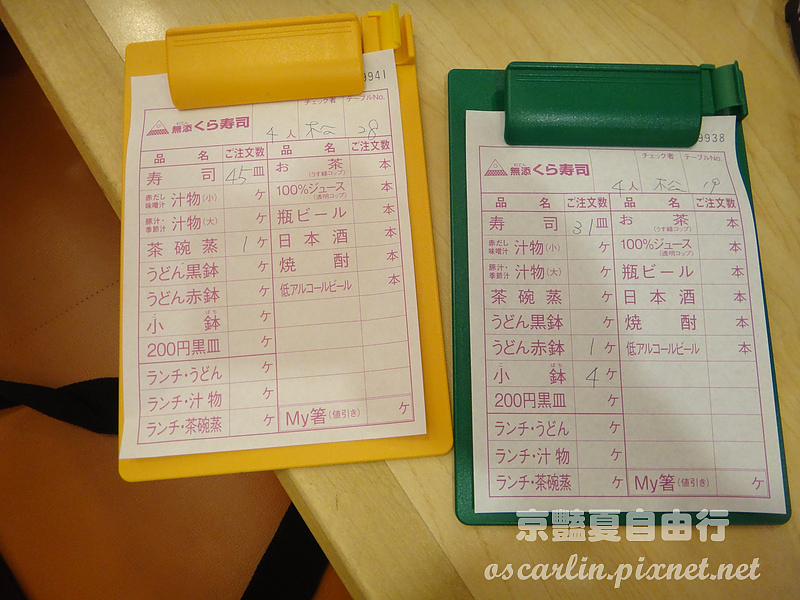 9941
チェック者 テーブルNo.
無添 くら寿司
4人 松 28
品 名 ご注文数 品 名 ご注文数
寿 司 45 皿 お 茶 (うす緑コップ) 本
赤だし 味噌汁 汁物(小) ケ 100%ジュース (透明コップ) 本
豚汁・季節汁 汁物(大) ケ 瓶ビール 本
茶碗蒸 1 ケ 日本酒 本
うどん黒鉢 ケ 焼 酎 本
うどん赤鉢 ケ 低アルコールビール 本
小 鉢 ケ
200円黒皿 ケ
ランチ・うどん ケ
ランチ・汁物 ケ
ランチ・茶碗蒸 ケ My箸(値引き) ケ
9938
チェック者 テーブルNo.
無添 くら寿司
4人 松
品 名 ご注文数 品 名 ご注文数
寿 司 31 皿 お 茶 (うす緑コップ) 本
赤だし 味噌汁 汁物(小) ケ 100%ジュース (透明コップ) 本
豚汁・季節汁 汁物(大) ケ 瓶ビール 本
茶碗蒸 ケ 日本酒 本
うどん黒鉢 ケ 焼 酎 本
うどん赤鉢 1 ケ 低アルコールビール 本
小 鉢 4 ケ
200円黒皿 ケ
ランチ・うどん ケ
ランチ・汁物 ケ
ランチ・茶碗蒸 ケ My箸(値引き) ケ
京豔夏自由行
oscarlin.pixnet.net